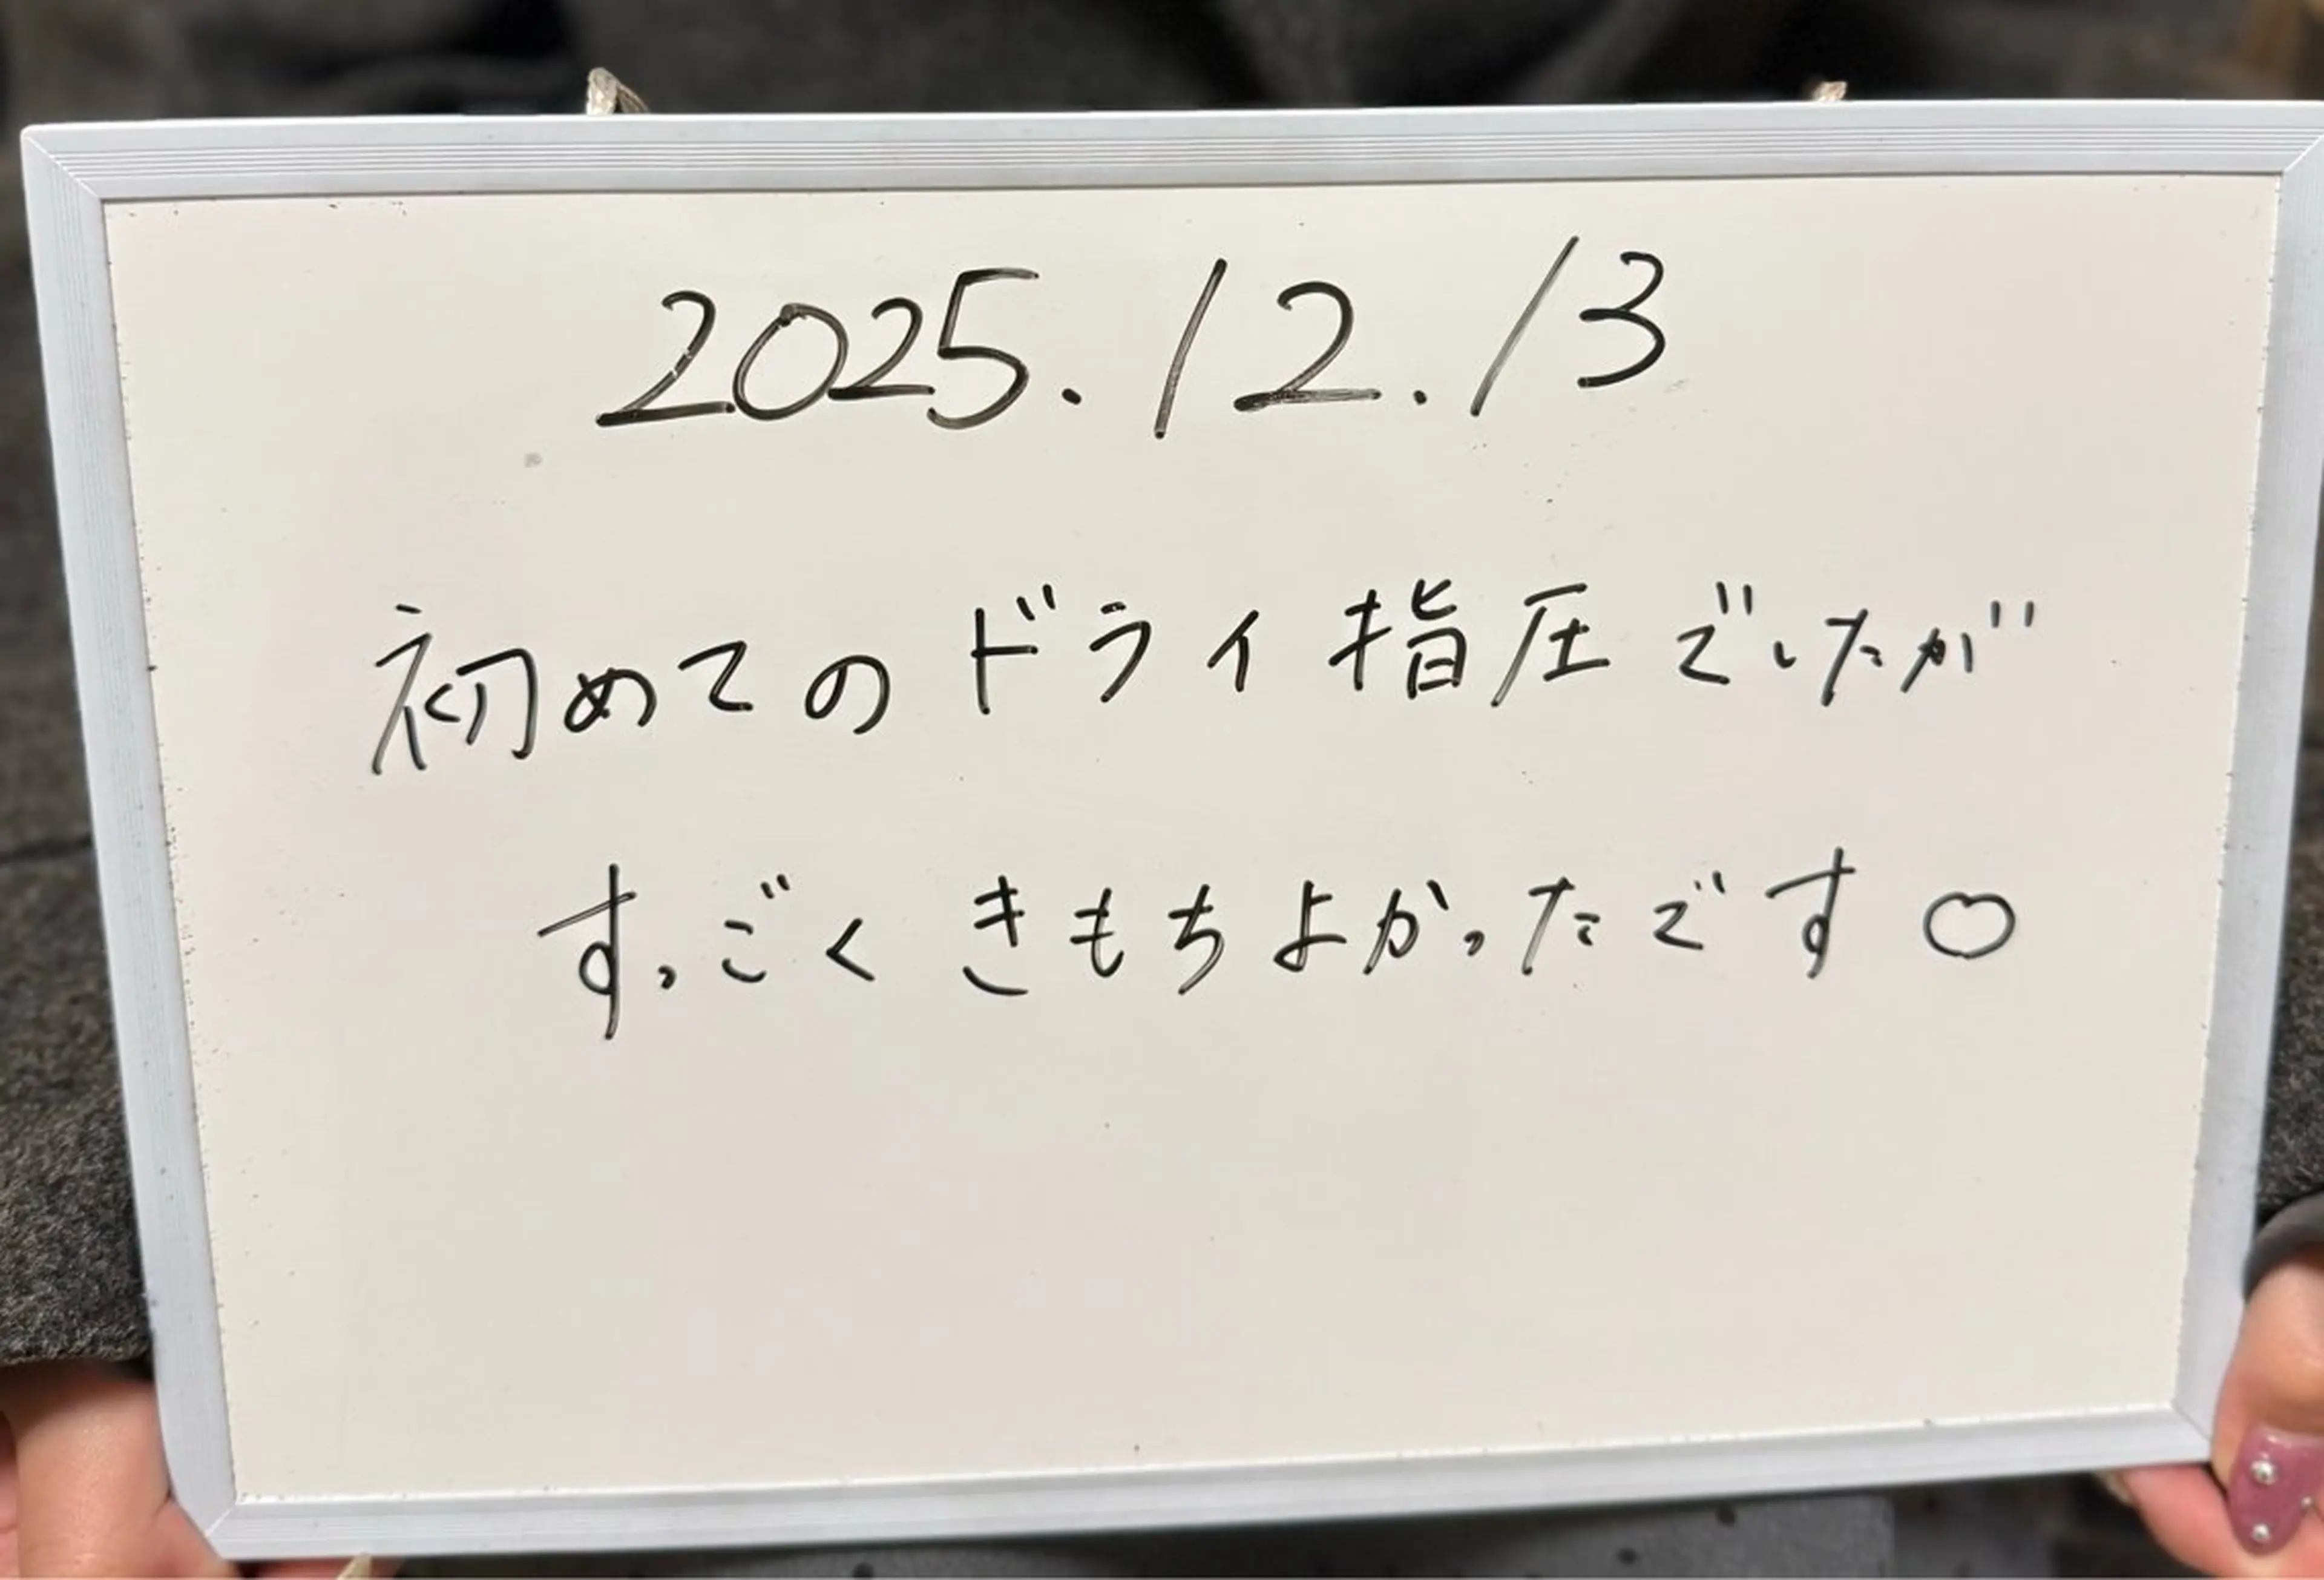 2025.12.13
初めてのドライ指圧でしたが
すっごくきもちよかったです♡